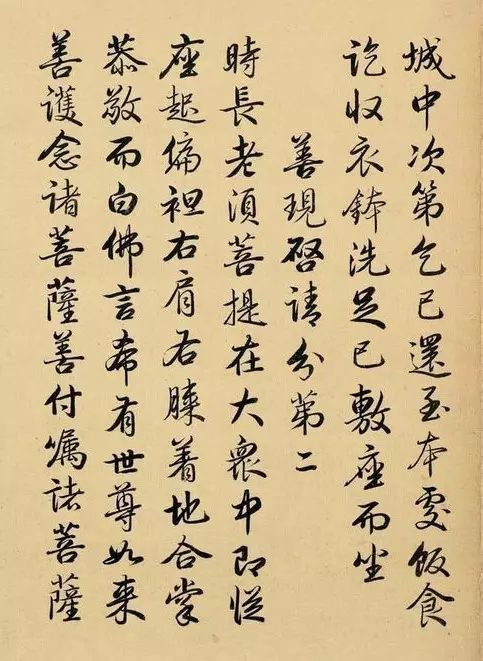 城中次第乞已還至本處飯食
訖收衣鉢洗足已敷座而坐
善現啓請分第二
時長老須菩提在大衆中即從
座起偏袒右肩右膝着地合掌
恭敬而白佛言希有世尊如来
善護念諸菩薩善付嘱諸菩薩